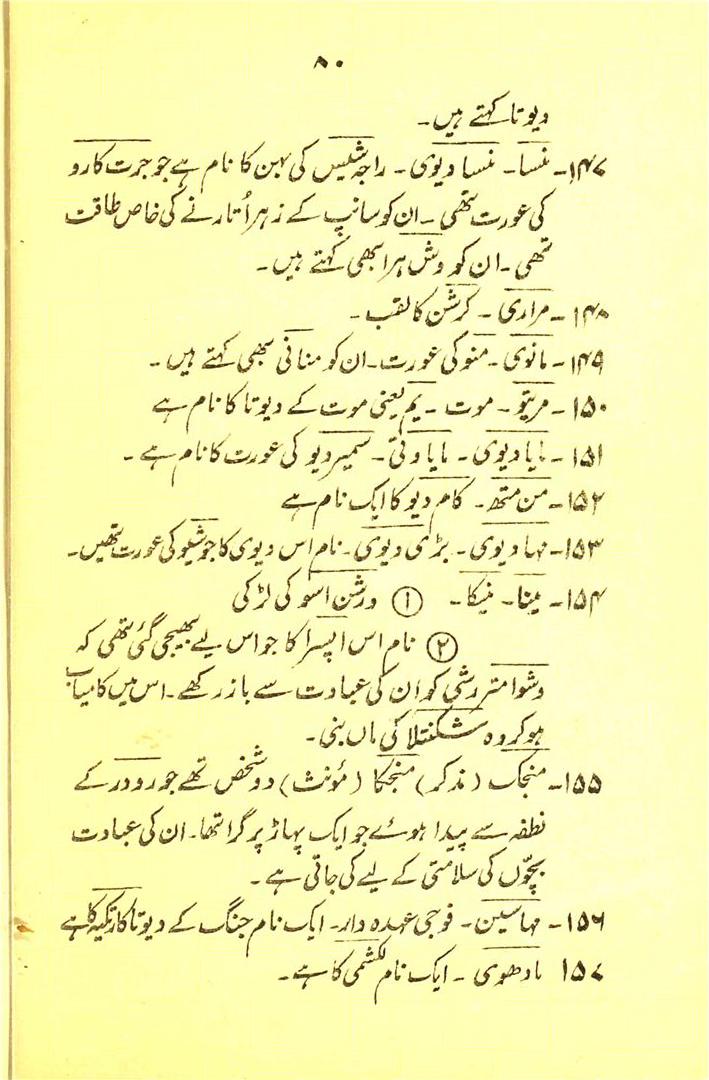 ۸۰
دیوتا کہتے ہیں۔
۱۴۷۔ منسا۔ منسا دیوی۔ راجہ شیس کی بہن کا نام ہے جو جرت کارو
کی عورت تھی۔ ان کو سانپ کے زہر اُتارنے کی خاص طاقت
تھی۔ ان کو وش ہرا بھی کہتے ہیں۔
۱۴۸۔ مراری۔ کرشن کا لقب۔
۱۴۹۔ مانوی۔ منو کی عورت۔ ان کو منانی بھی کہتے ہیں۔
۱۵۰۔ مریتو۔ موت۔ یم یعنی موت کے دیوتا کا نام ہے
۱۵۱۔ مایا دیوی۔ مایا وتی۔ سمبر دیو کی عورت کا نام ہے۔
۱۵۲۔ من متھ۔ کام دیو کا ایک نام ہے
۱۵۳۔ مہا دیوی۔ بڑی دیوی۔ نام اس دیوی کا جو شیو کی عورت تھیں۔
۱۵۴۔ مینا۔ منیکا۔ ① ورشن اسو کی لڑکی
② نام اس اپسرا کا جو اس لیے بھیجی گئی تھی کہ
وشوا متر رشی کو ان کی عبادت سے باز رکھے۔ اس میں کامیاب
ہو کر وہ شکنتلا کی ماں بنی۔
۱۵۵۔ منجک (مذکر) منجکا (مؤنث) دو شخص تھے جو رودر کے
نطفہ سے پیدا ہوئے جو ایک پہاڑ پر گرا تھا۔ ان کی عبادت
بچّوں کی سلامتی کے لیے کی جاتی ہے۔
۱۵۶۔ مہاسین۔ فوجی عہدہ دار۔ ایک نام جنگ کے دیوتا کارتکیہ کا ہے
۱۵۷ مادھوی۔ ایک نام لکشمی کا ہے۔